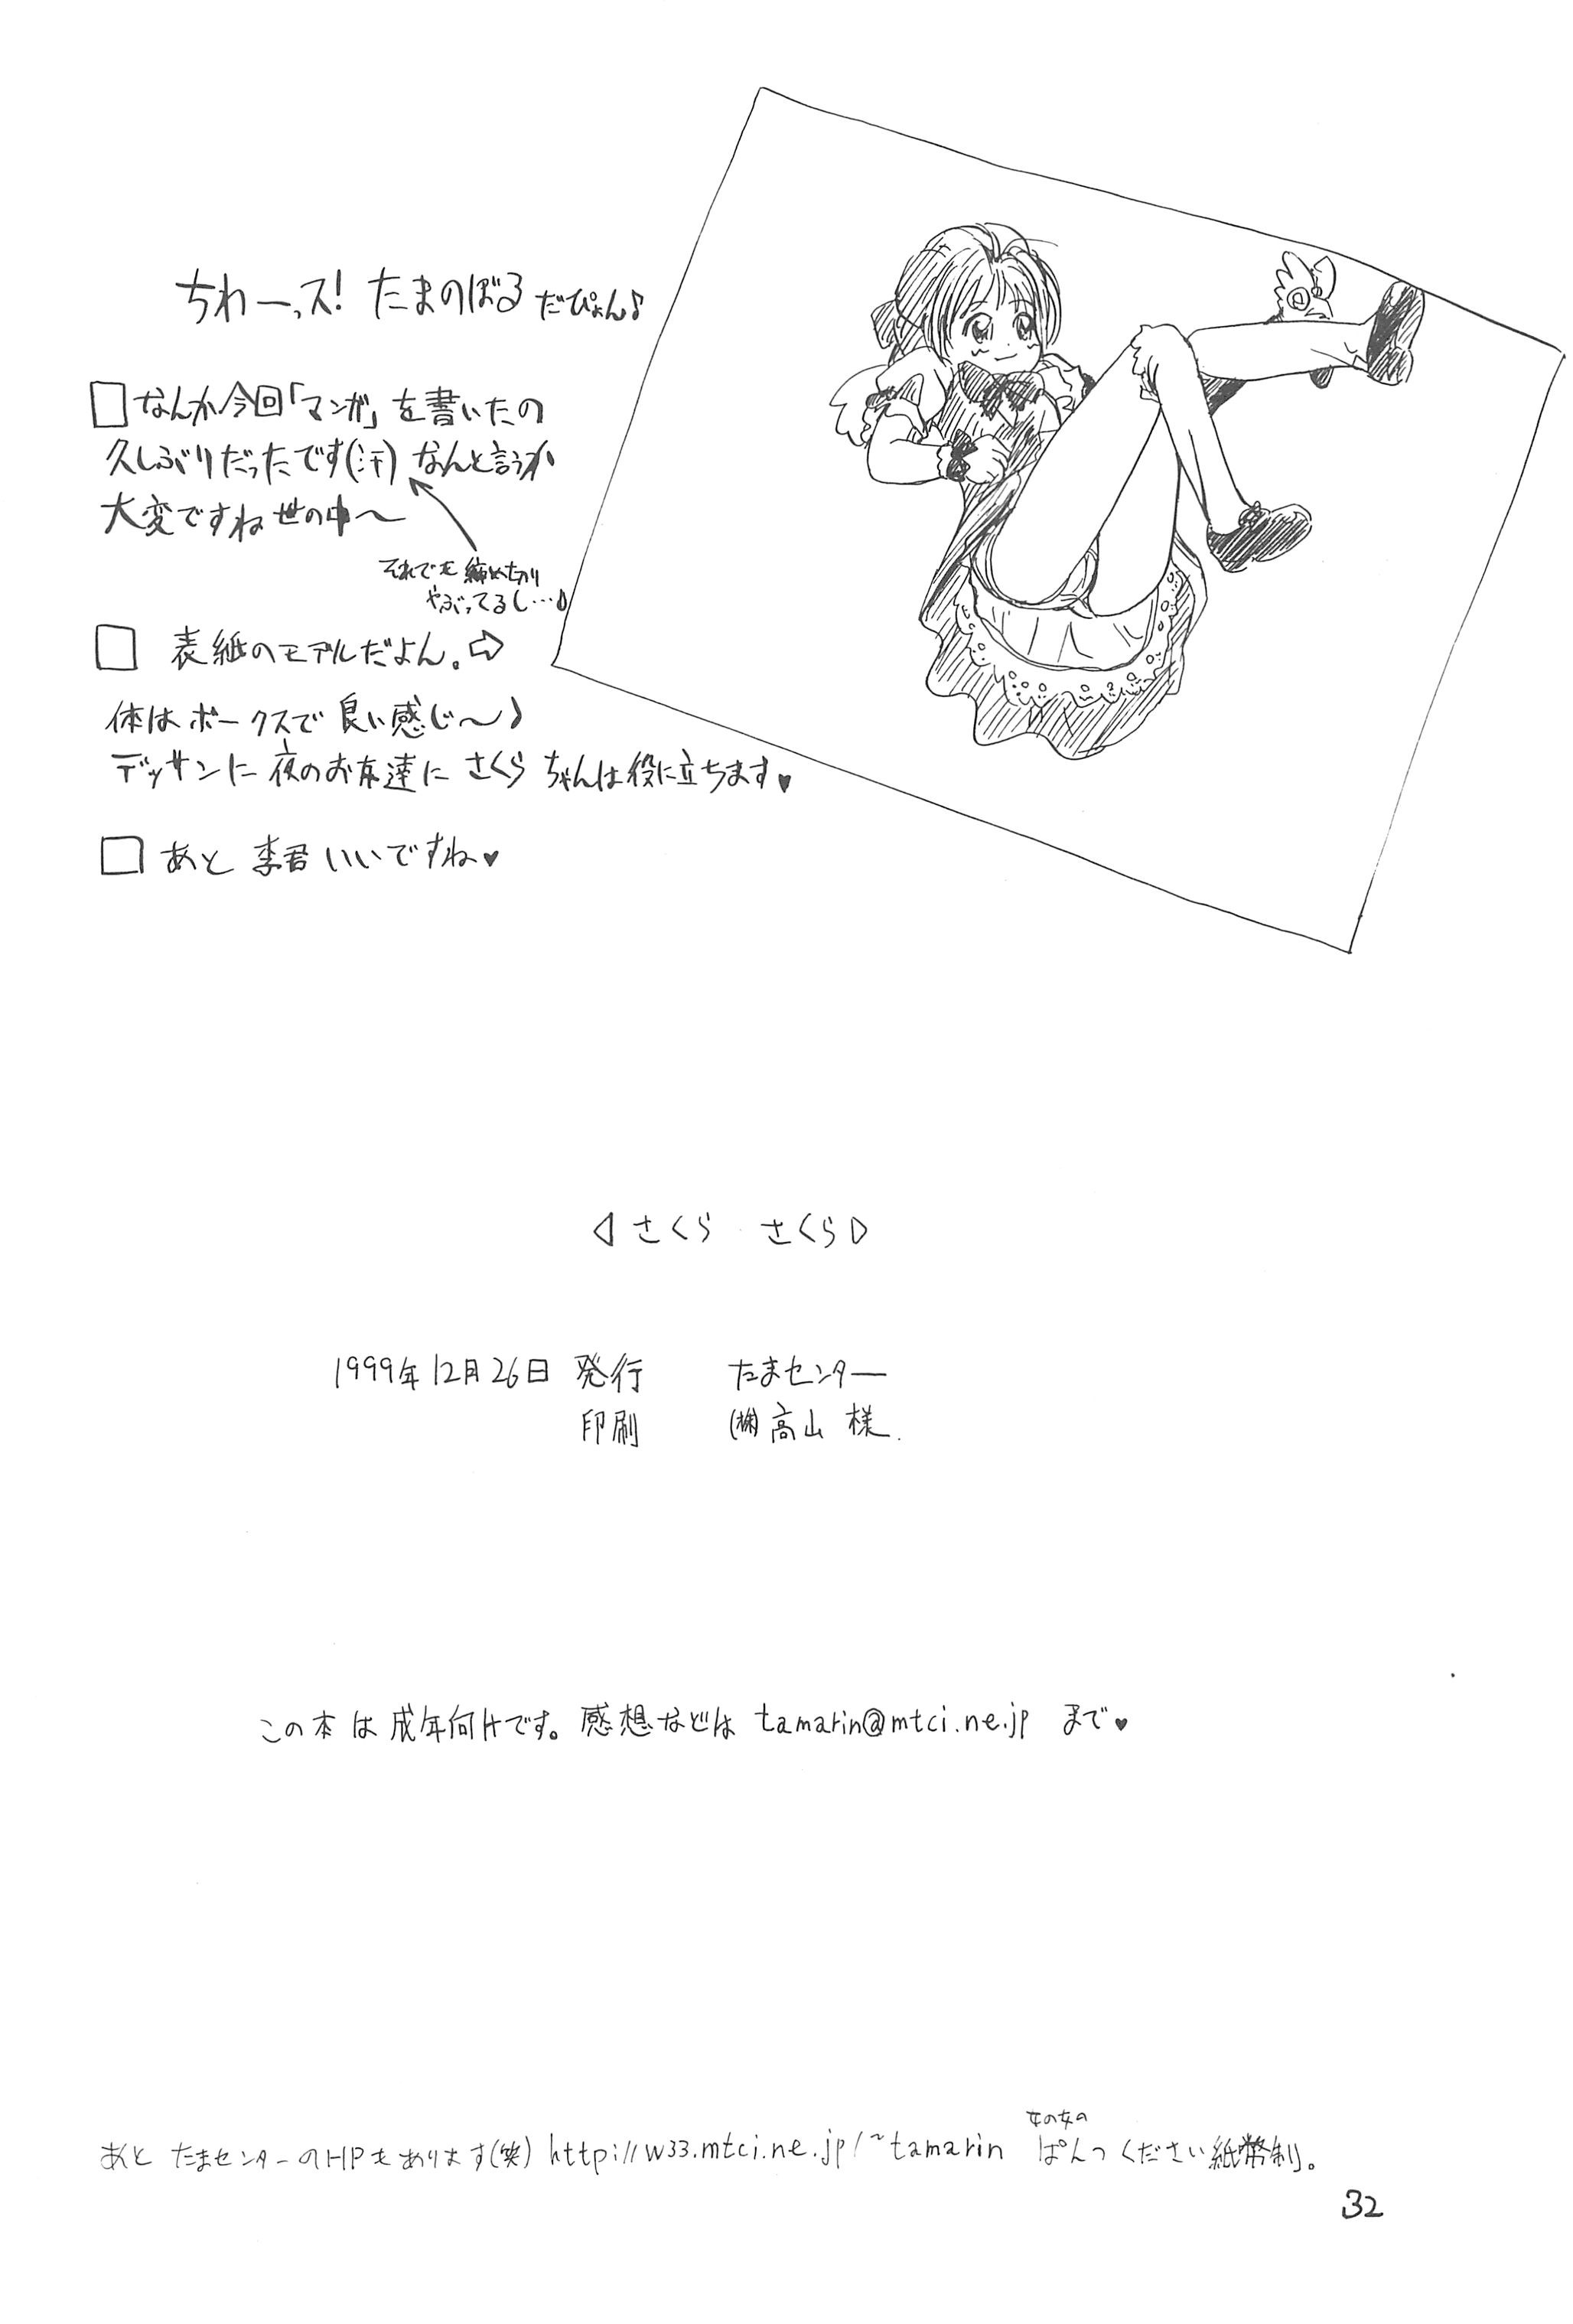 ちわーっス! たまのぼる だぴょん♪
□なんか今回「マンガ」を書いたの
久しぶりだったです(汗) なんと言うか
大変ですね 世の中〜
それでも 締め切り
やぶってるし…♪
□ 表紙のモデルだよん。⇨
体は ボークスで 良い感じ〜♪
デッサンに 夜のお友達に さくら ちゃんは役に立ちます♥
□ あと 李君 いいですね♥
◁ さくら さくら ▷
1999年12月26日 発行 たまセンター
印刷 (株)高山 様.
この本は 成年向けです。感想などは tamarin@mtci.ne.jp まで♥
あと たまセンターのHPもあります(笑) http://w33.mtci.ne.jp/~tamarin ぱんつ ください 紙幣制。
32